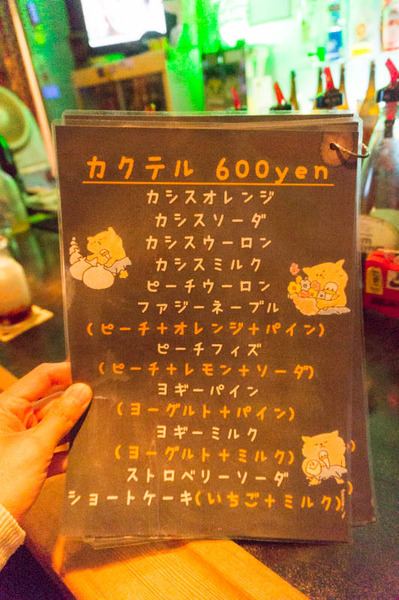 カクテル 600yen
カシスオレンジ
カシスソーダ
カシスウーロン
カシスミルク
ピーチウーロン
ファジーネーブル
(ピーチ+オレンジ+パイン)
ピーチフィズ
(ピーチ+レモン+ソーダ)
ヨギーパイン
(ヨーグルト+パイン)
ヨギーミルク
(ヨーグルト+ミルク)
ストロベリーソーダ
ショートケーキ(いちご+ミルク)